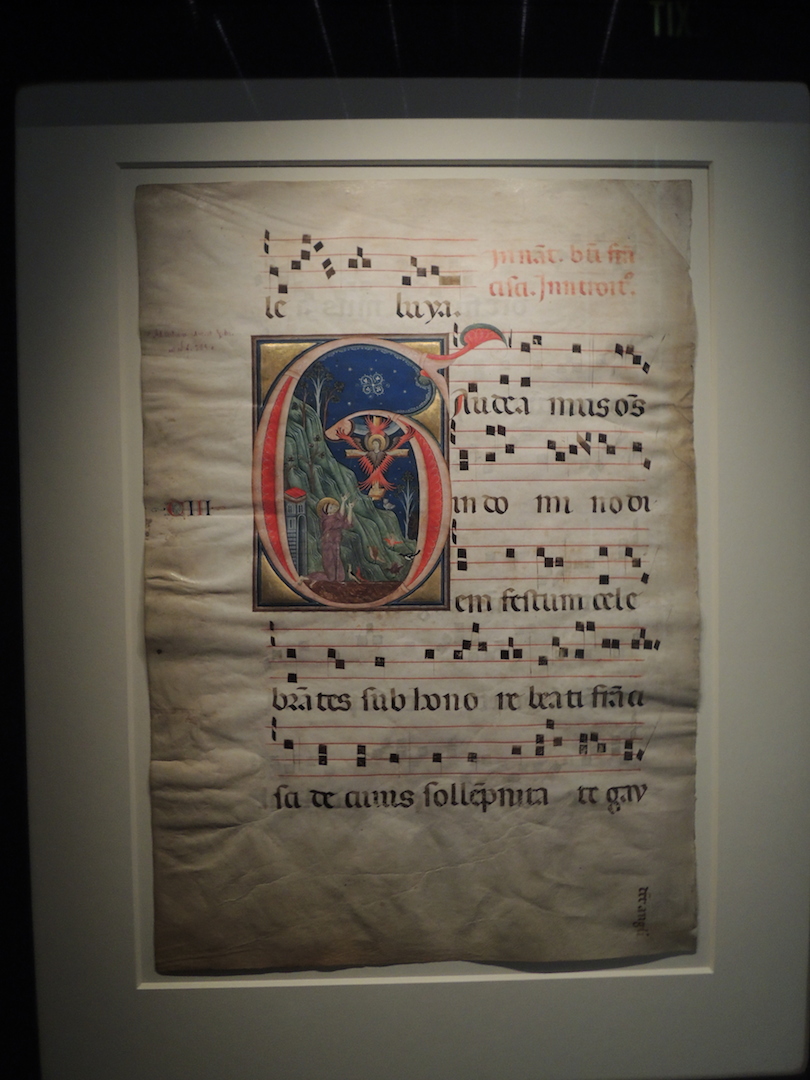 le luya.
In nat̄. bt̄i frā
cisci. Introit⁹.
Gaudea mus os̄
in do mi no di
CIII
em festum cele
brātes sub hono re beati frāci
sci de cuius sollēpnita te gau
ent angli